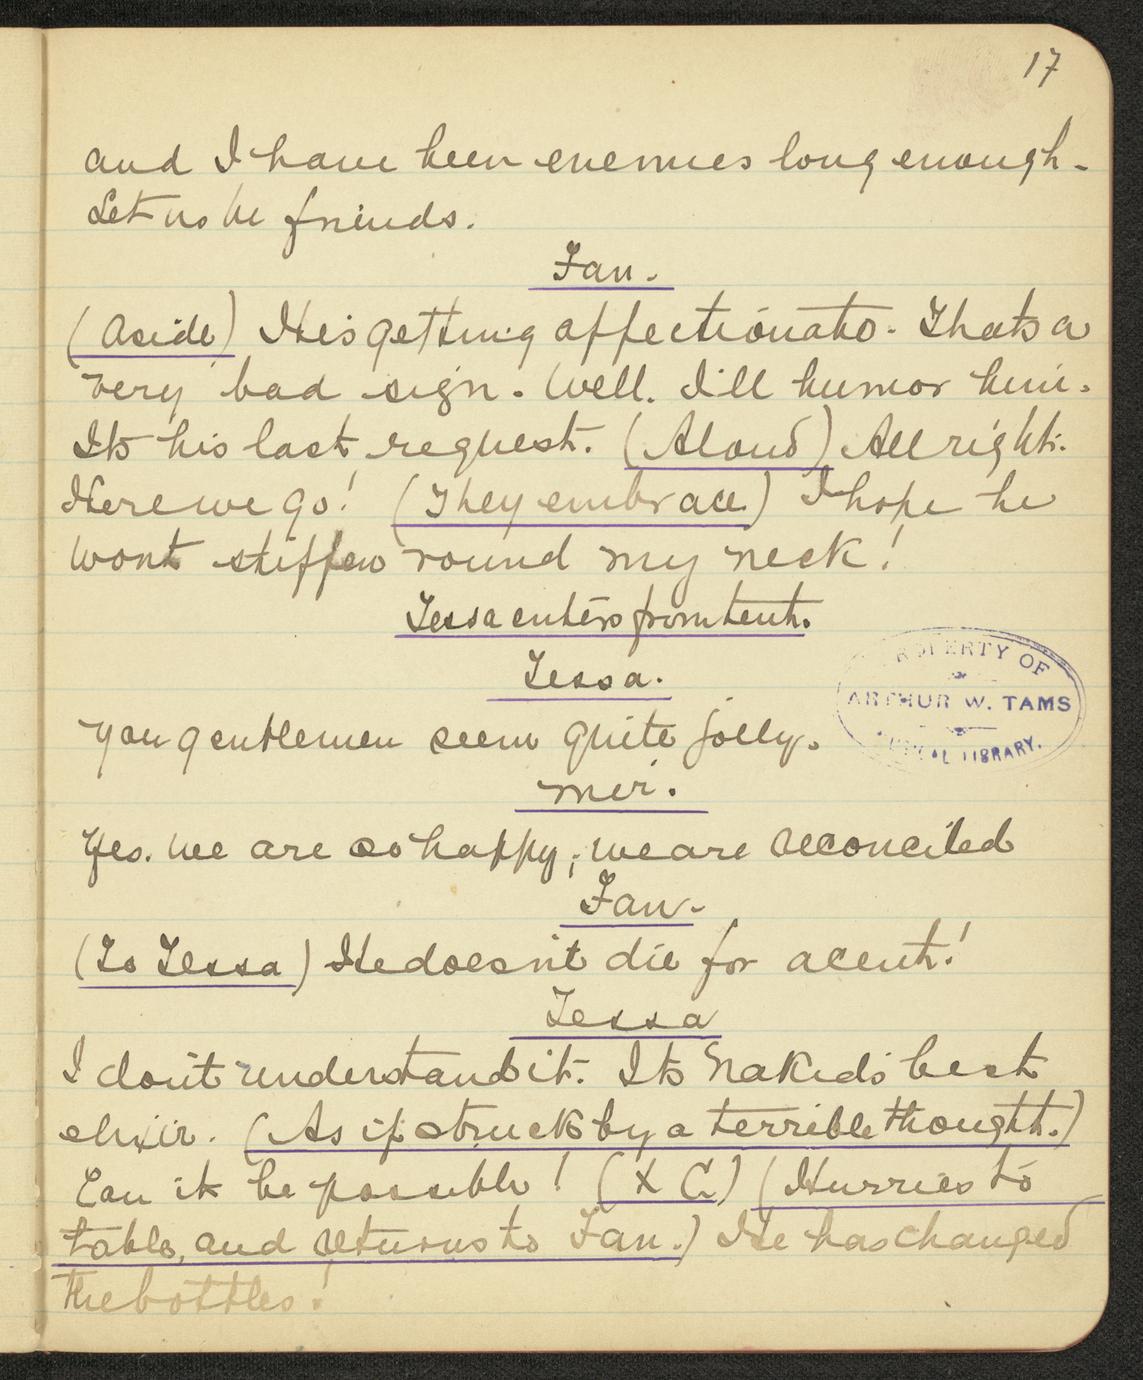 17
and I have been enemies long enough -
Let us be friends.
Fan.
(Aside) He's getting affectionate. Thats a
very bad sign. Well. I'll humor him.
Its his last request. (Aloud) All right.
Here we go! (They embrace) I hope he
wont stiffen round my neck!
Tessa enters from tent.
Tessa.
You gentlemen seem quite jolly.
PROPERTY OF
ARTHUR W. TAMS
MUSICAL LIBRARY.
Mir.
Yes. We are so happy, we are reconciled
Fan.
(To Tessa) He doesn't die for a cent!
Tessa
I don't understand it. Its Nakid's best
elixir. (As if struck by a terrible thought.)
Can it be possible! (X C) (Hurries to
table, and returns to Fan.) He has changed
the bottles!